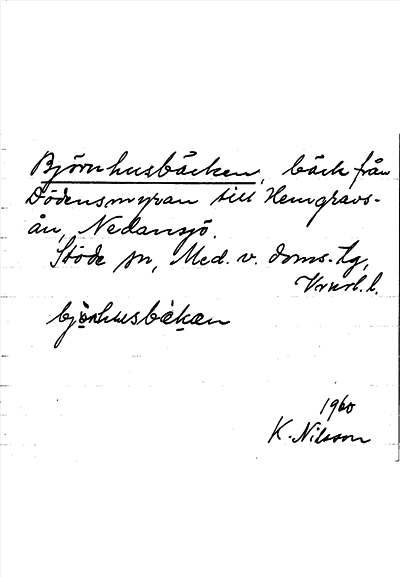 Björnhusbäcken, bäck från
Dödensmyran till Hemgravs-
ån, Nedansjö.
Stöde sn, Med. v. doms. tg,
Vnrl. l.
björnhusbäkän
1960
K. Nilsson